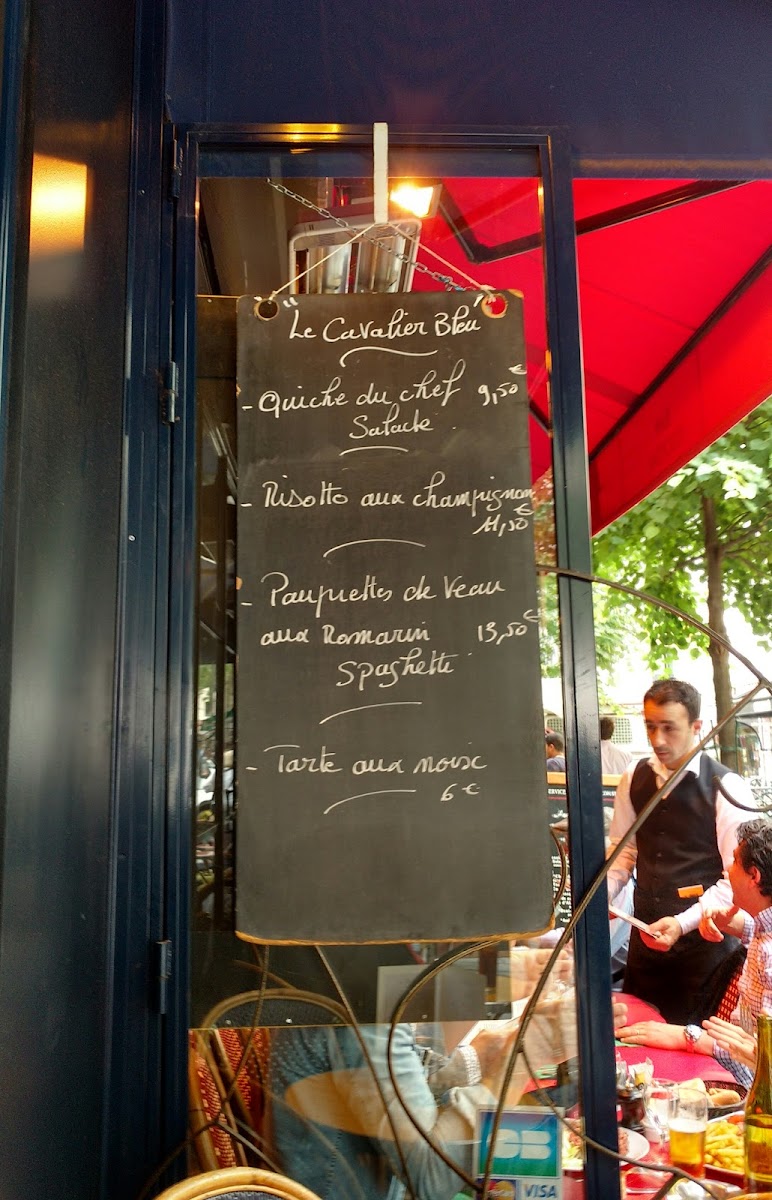 "Le Cavalier Bleu"
- Quiche du chef 9,50 €
Salade
- Risotto aux champignon
11,50 €
- Paupiettes de Veau
aux Romarin 13,50 €
Spaghetti
- Tarte aux noix
6 €
CB
VISA